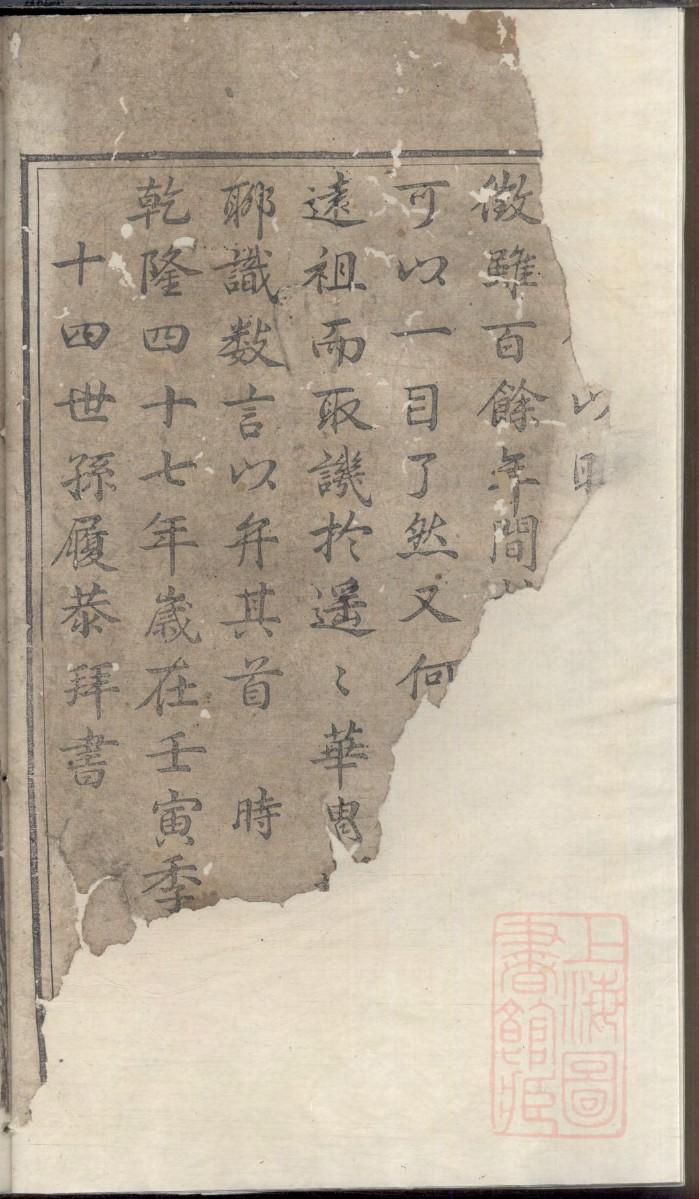 以
徵雖百餘年間
可以一目了然又何
遠祖而取譏於遥〻華冑
聊識数言以弁其首　時
乾隆四十七年歲在壬寅季
十四世孫履恭拜書
上海圖
書館藏